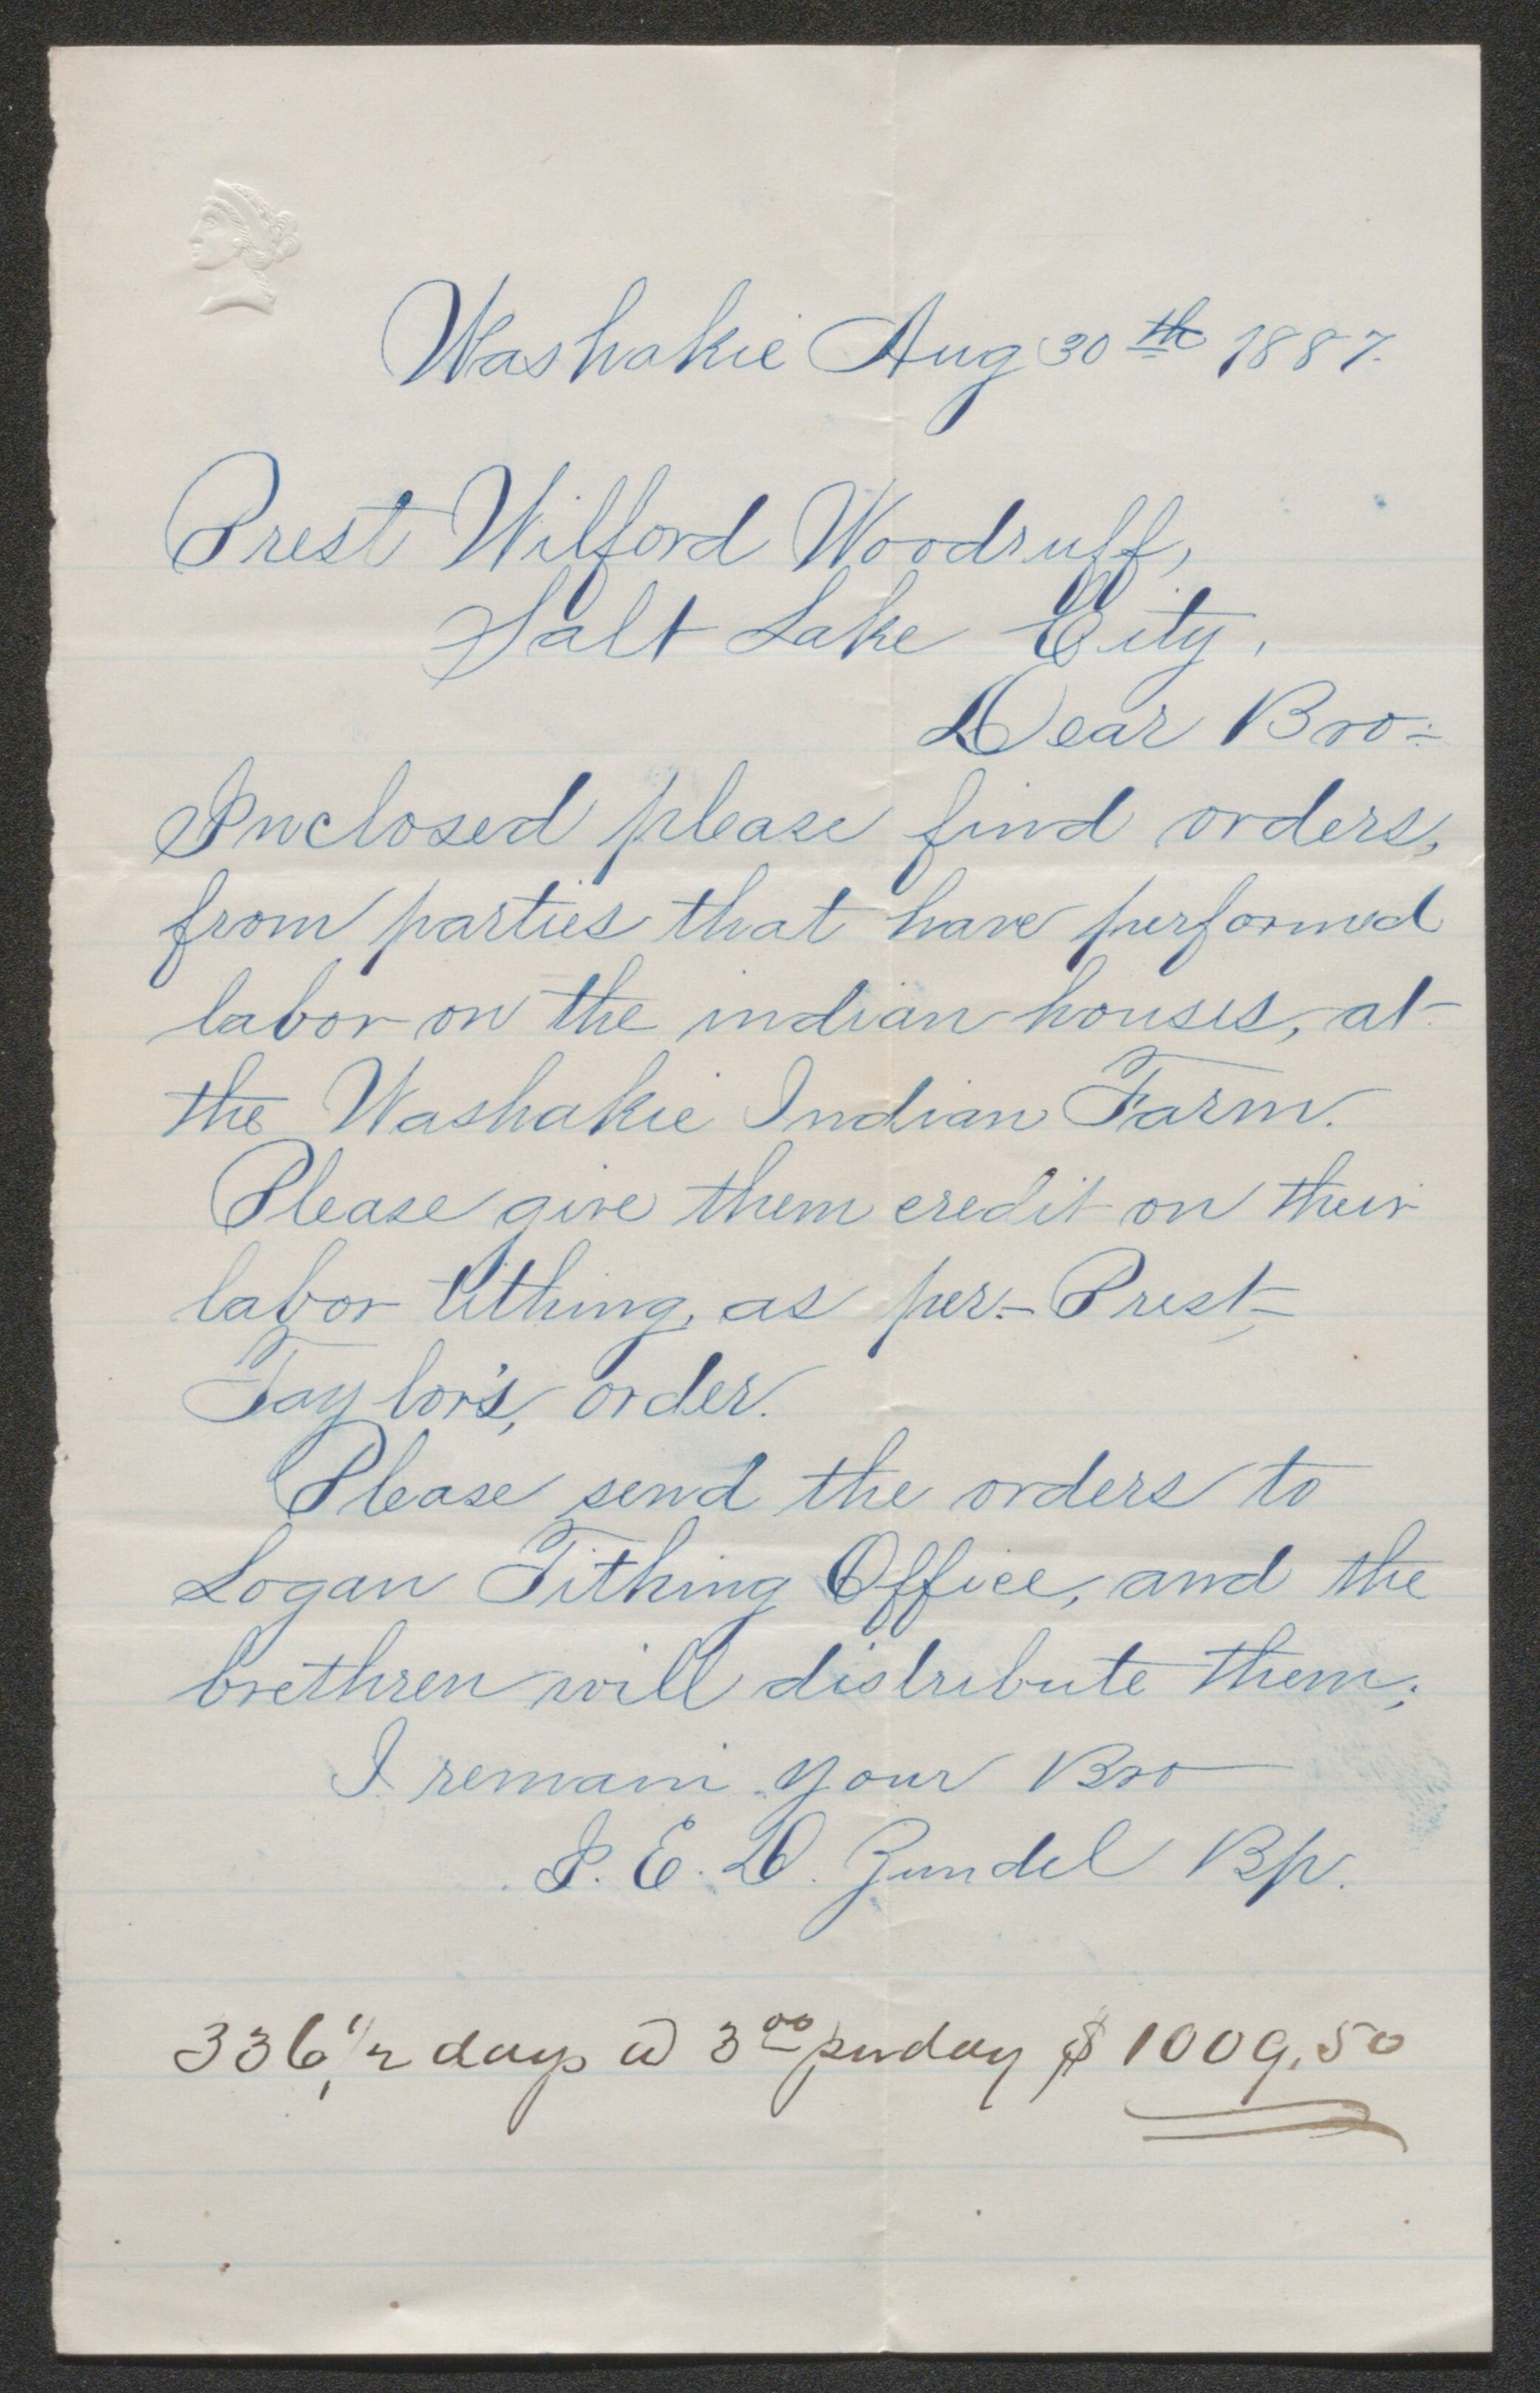 Washakie Aug 30th 1887.
Prest Wilford Woodruff,
Salt Lake City,
Dear Bro-
Inclosed please find orders,
from parties that have performed
labor on the indian houses, at
the Washakie Indian Farm.
Please give them credit on their
labor tithing, as per- Prest-
Taylor's, order.
Please send the orders to
Logan Tithing Office, and the
brethren will distribute them;
I remain your Bro
I. E. D. Zundel Bp.
336 1/2 days @ 3 00 per day $ 1009.50